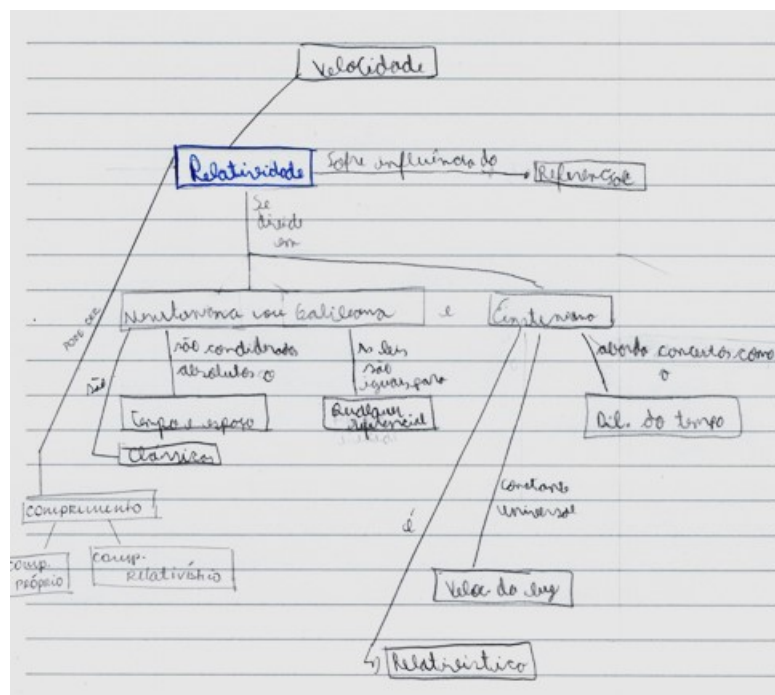 Velocidade
Relatividade
Sofre influência do
Referencial
Se
divide
em
Newtoniana ou Galileana
e
Einsteniana
PODE SER
são
são considerados
absolutos o
As leis
são
iguais para
aborda conceitos como
o
Tempo e espaço
Qualquer
referencial
Dil. do tempo
Clássicas
constante
universal
COMPRIMENTO
é
comp.
PRÓPRIO
comp.
RELATIVÍSTICO
Veloc. da luz
Relativístico